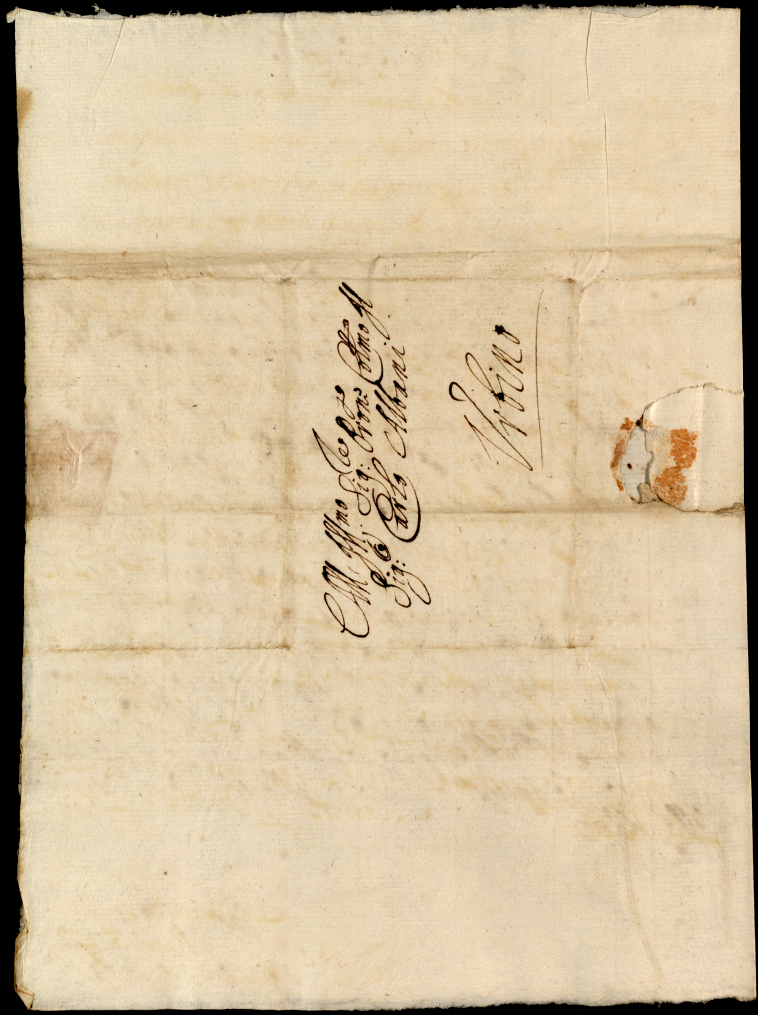 All Ill.mo Sig.
Sig: Pron: Colmo Il
Sig: Carlo Albani
Urbino